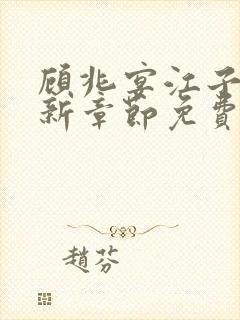 顾兆宴江子
新章節免費
趙芬